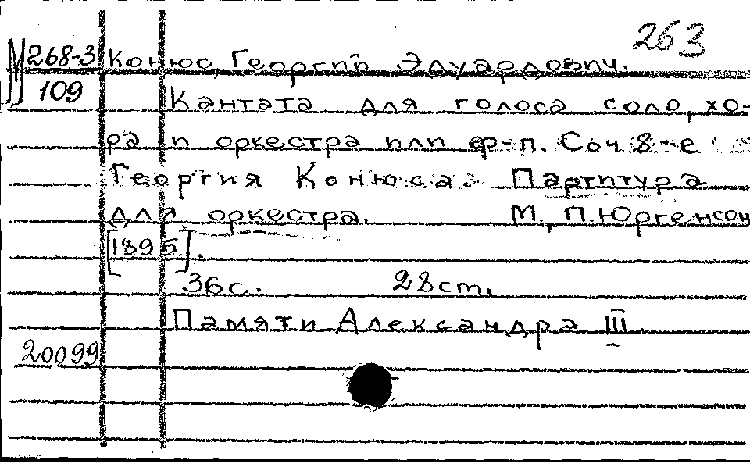 263
М 268-3 Конюс, Георгий Эдуардович.
109 Кантата для голоса соло, хо-
ра и оркестра или ф-п. Соч. 8-е
Георгия Конюса. Партитура
для оркестра. М., П. Юргенсон
[1895].
36 с. 28 cm.
Памяти Александра III
20099